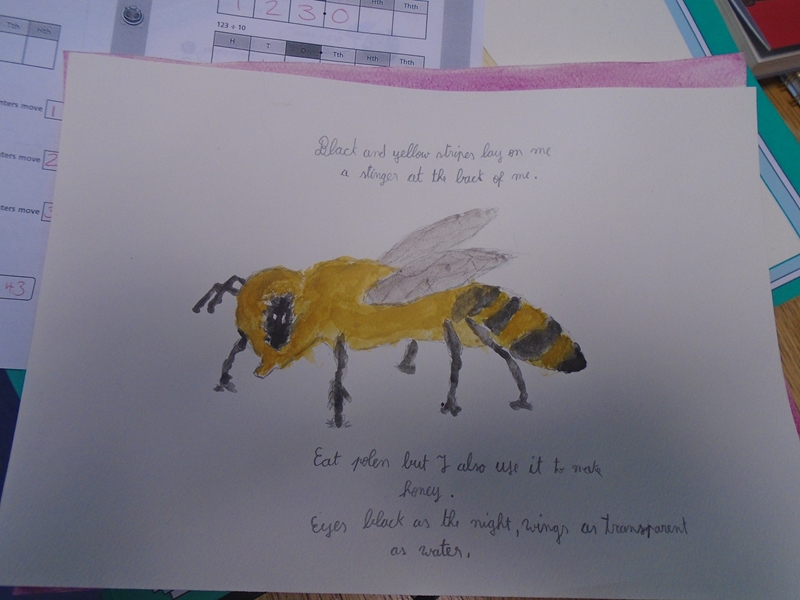 1 2 3 0 Hth Thth
123 ÷ 10
H T Tth Hth Thth
Tth Hth
nters move 1
nters move 2
ters move
43
Black and yellow stripes lay on me
a stinger at the back of me.
Eat polen but I also use it to make
honey.
Eyes black as the night, wings as transparent
as water.